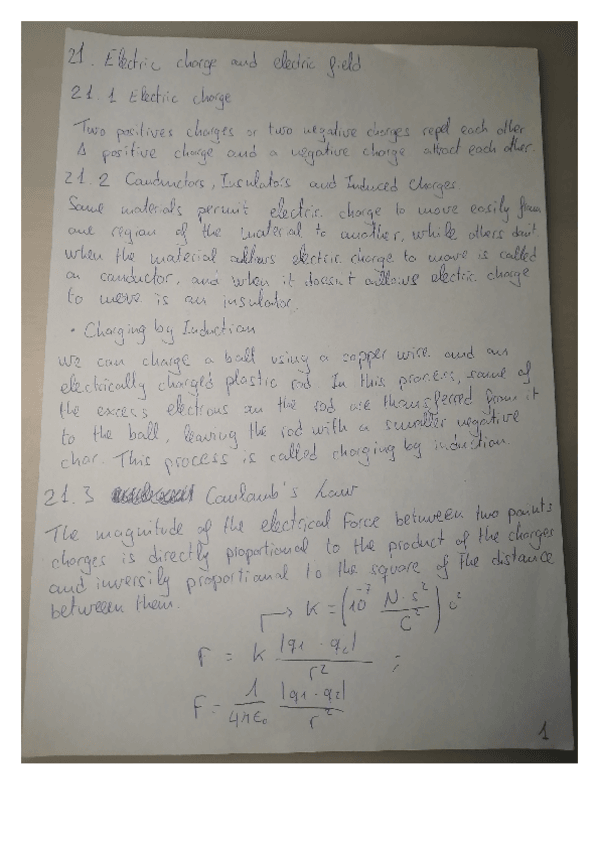 21. Electric charge and electric field
21.1 Electric charge
Two positives charges or two negative charges repel each other
A positive charge and a negative charge attract each other.
21.2 Conductors, Insulators and Induced Charges.
Some materials permit electric charge to move easily from
one region of the material to another, while others don't.
when the material allows electric charge to move is called
an conductor, and when it doesn't allows electric charge
to move is an insulator.
• Charging by Induction
We can charge a ball using a copper wire and an
electrically charged plastic rod. In this process, some of
the excess electrons on the rod are transferred from it
to the ball, leaving the rod with a smaller negative
char. This process is called charging by induction.
21.3 Coulomb's Law
The magnitude of the electrical Force between two points
charges is directly proportional to the product of the charges
and inversily proportional to the square of the distance
between them.
→ K = (10^-7 N·s²/C²) c²
F = K |q1 · q2| / r² ;
F = 1/4πε₀ |q1 · q2| / r²
1